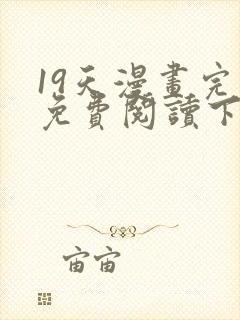 19天漫畫完
免費閱讀下
宙宙